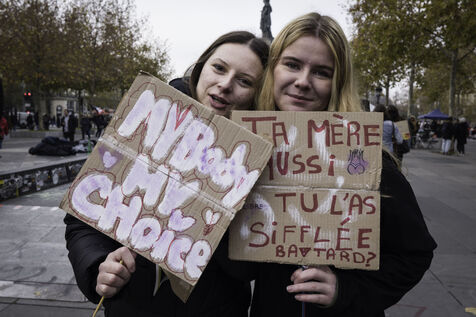 MY BODY
MY
CHOICE
TA MÈRE
AUSSI
TU L'AS
SIFFLÉE
BATARD?